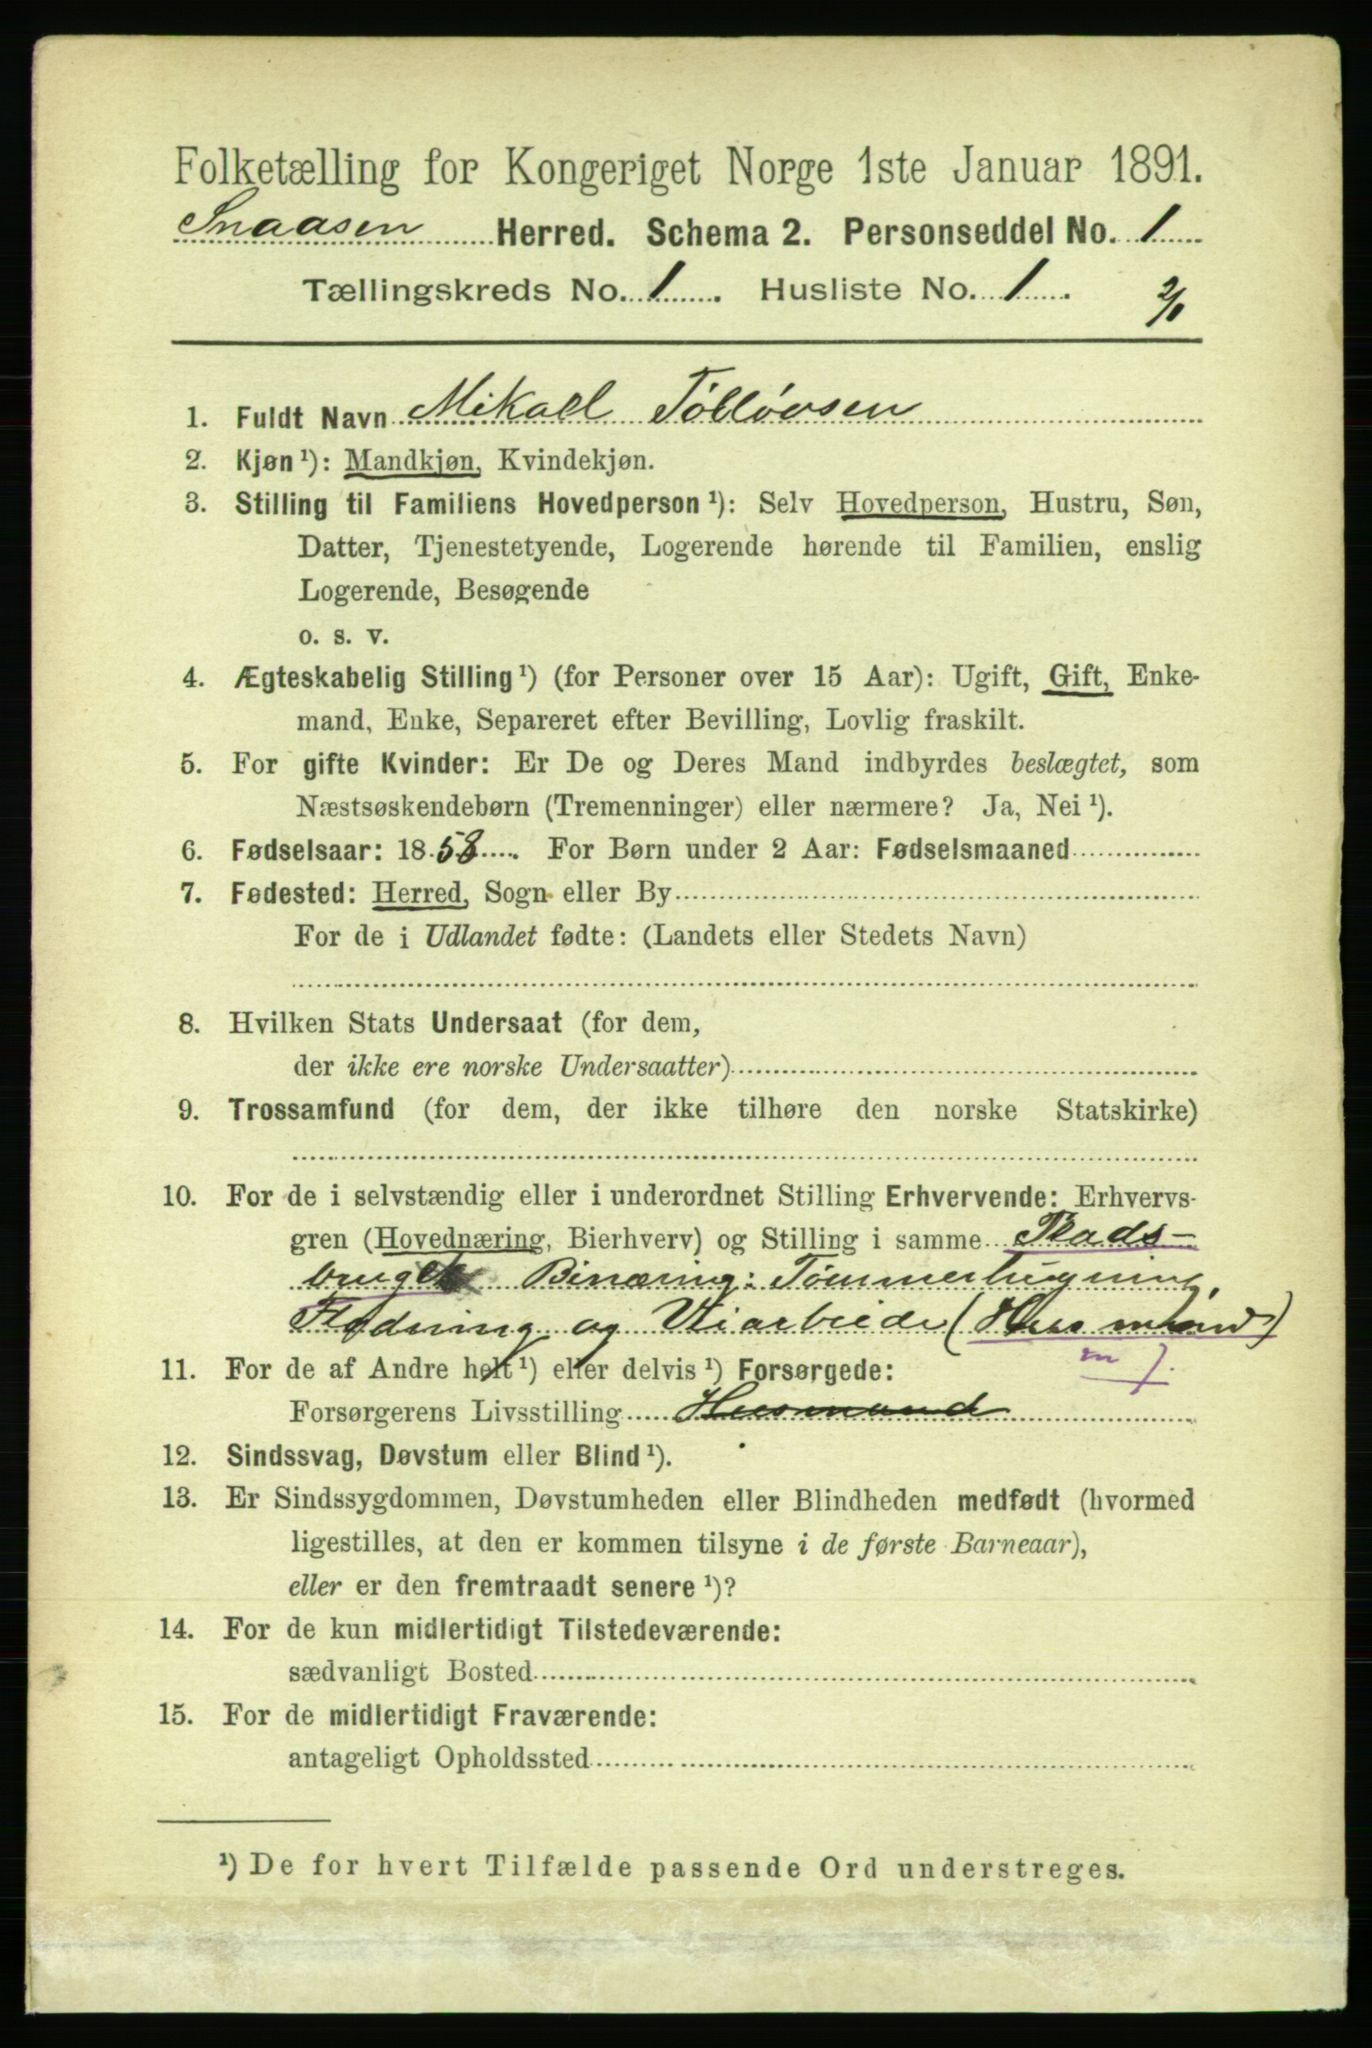 Folketælling for Kongeriget Norge 1ste Januar 1891.
Snaasen Herred. Schema 2. Personseddel No. 1
Tællingskreds No. 1. Husliste No. 1. 2/1
1. Fuldt Navn Mikael Tølløvsen
2. Kjøn¹): Mandkjøn, Kvindekjøn.
3. Stilling til Familiens Hovedperson¹): Selv Hovedperson, Hustru, Søn,
Datter, Tjenestetyende, Logerende hørende til Familien, enslig
Logerende, Besøgende
o. s. v.
4. Ægteskabelig Stilling¹) (for Personer over 15 Aar): Ugift, Gift, Enke-
mand, Enke, Separeret efter Bevilling, Lovlig fraskilt.
5. For gifte Kvinder: Er De og Deres Mand indbyrdes beslægtet, som
Næstsøskendebørn (Tremenninger) eller nærmere? Ja, Nei¹).
6. Fødselsaar: 1858. For Børn under 2 Aar: Fødselsmaaned
7. Fødested: Herred, Sogn eller By
For de i Udlandet fødte: (Landets eller Stedets Navn)
8. Hvilken Stats Undersaat (for dem,
der ikke ere norske Undersaatter)
9. Trossamfund (for dem, der ikke tilhøre den norske Statskirke)
10. For de i selvstændig eller i underordnet Stilling Erhvervende: Erhvervs-
gren (Hovednæring, Bierhverv) og Stilling i samme Plads-
bruget Binæring: Tømmerhugning,
Flødning og Veiarbeide (Husmand)
m j.
11. For de af Andre helt¹) eller delvis¹) Forsørgede:
Forsørgerens Livsstilling Husmand
12. Sindssvag, Døvstum eller Blind¹).
13. Er Sindssygdommen, Døvstumheden eller Blindheden medfødt (hvormed
ligestilles, at den er kommen tilsyne i de første Barneaar),
eller er den fremtraadt senere¹)?
14. For de kun midlertidigt Tilstedeværende:
sædvanligt Bosted
15. For de midlertidigt Fraværende:
antageligt Opholdssted
¹) De for hvert Tilfælde passende Ord understreges.